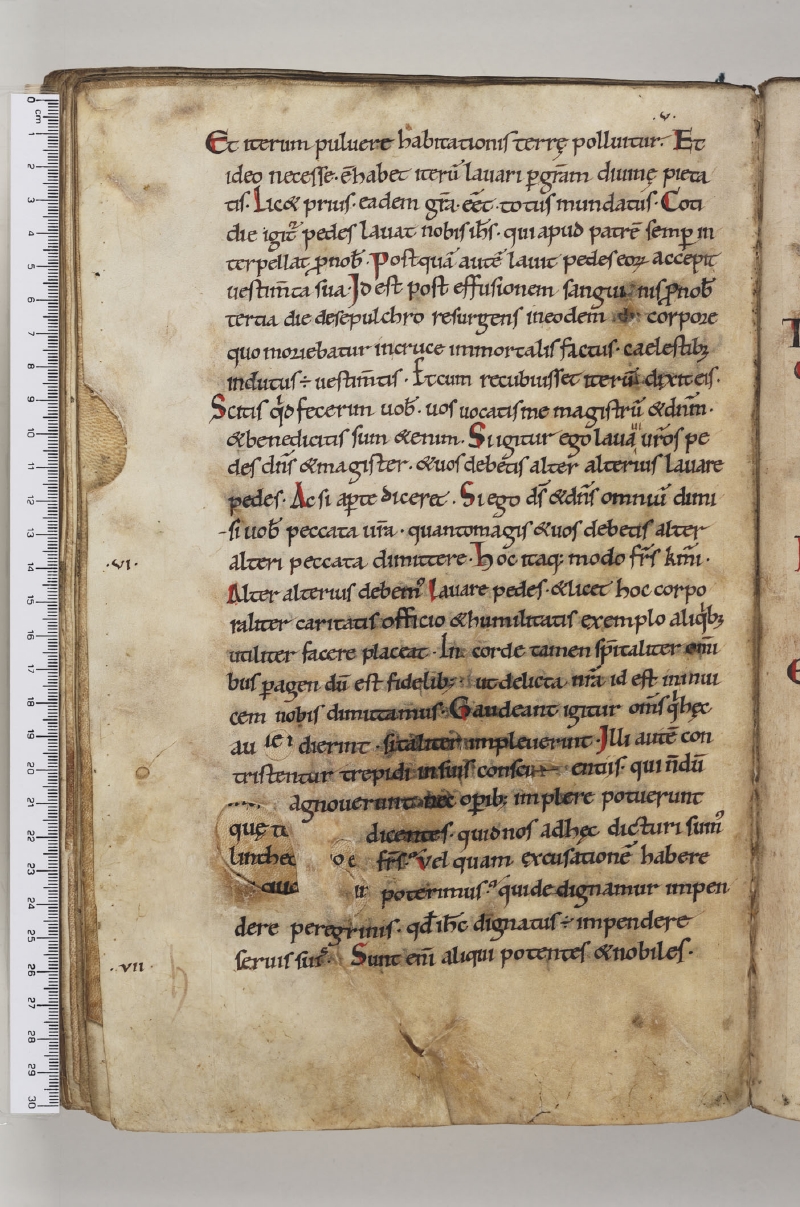 .v.
Et iterum puluere habitationis terrę polluitur. Et
ideo necesse. ē habet iterū lauari p gr̄am diuinę pieta
tis. Lic& prius. eadem gr̄a. eēt. totus mundatus. Coti
die igit̄ pedes lauat nobis ih̄s. qui apud patrē semp in
terpellat pnob̄. Postquā autē lauit pedes eoꝝ accepit
uestim̄ta sua. Id est post effusionem sanguinis pnob̄
tertia die desepulchro resurgens ineodem corpore
quo moriebatur incruce immortalis factus. caelestibꝫ
indutus ÷ uestim̄tis. Et cum recubuisset iterū dixit eis.
Scitis qd̄ fecerim uob̄. uos uocatis me magistrū & dn̄m.
& benedicitis sum & enim. Si igitur ego laua ur̄os pe
des dn̄s & magister. & uos debetis alter alterius lauare
pedes. Ac si apte diceret. Si ego ds̄ & dn̄s omniū dimi
-si uob̄ peccata ur̄a. quantomagis & uos debetis alter
alteri peccata dimittere. Hoc itaq; modo fr̄s km̄i.
.VI.
Alter alterius debem᾽ lauare pedes. & licet hoc corpo
raliter caritatis officio & humilitatis exemplo aliqbꝫ
utiliter facere placeat. In corde tamen sp̄italiter om̄i
bus pagen dū est fidelibꝫ ut delicta nr̄a id est in inui
cem nobis dimittamus. Gaudeant igitur om̄s q hęc
au ier dierint. si taliter impleuerint. Illi autē con
tristentur trepidi insuis entiis. qui n̄dū
agnouerunt. nec opibꝫ implere potuerunt
que ti dicentes. quid nos ad hęc dicturi sum᾽
fr̄s. Vel quam excusationē habere
poterimus. qui dedignamur impen
dere peregrinis. qd̄ ih̄c dignatus ÷ impendere
seruis suis. Sunt eni aliqui potentes & nobiles.
.VII.